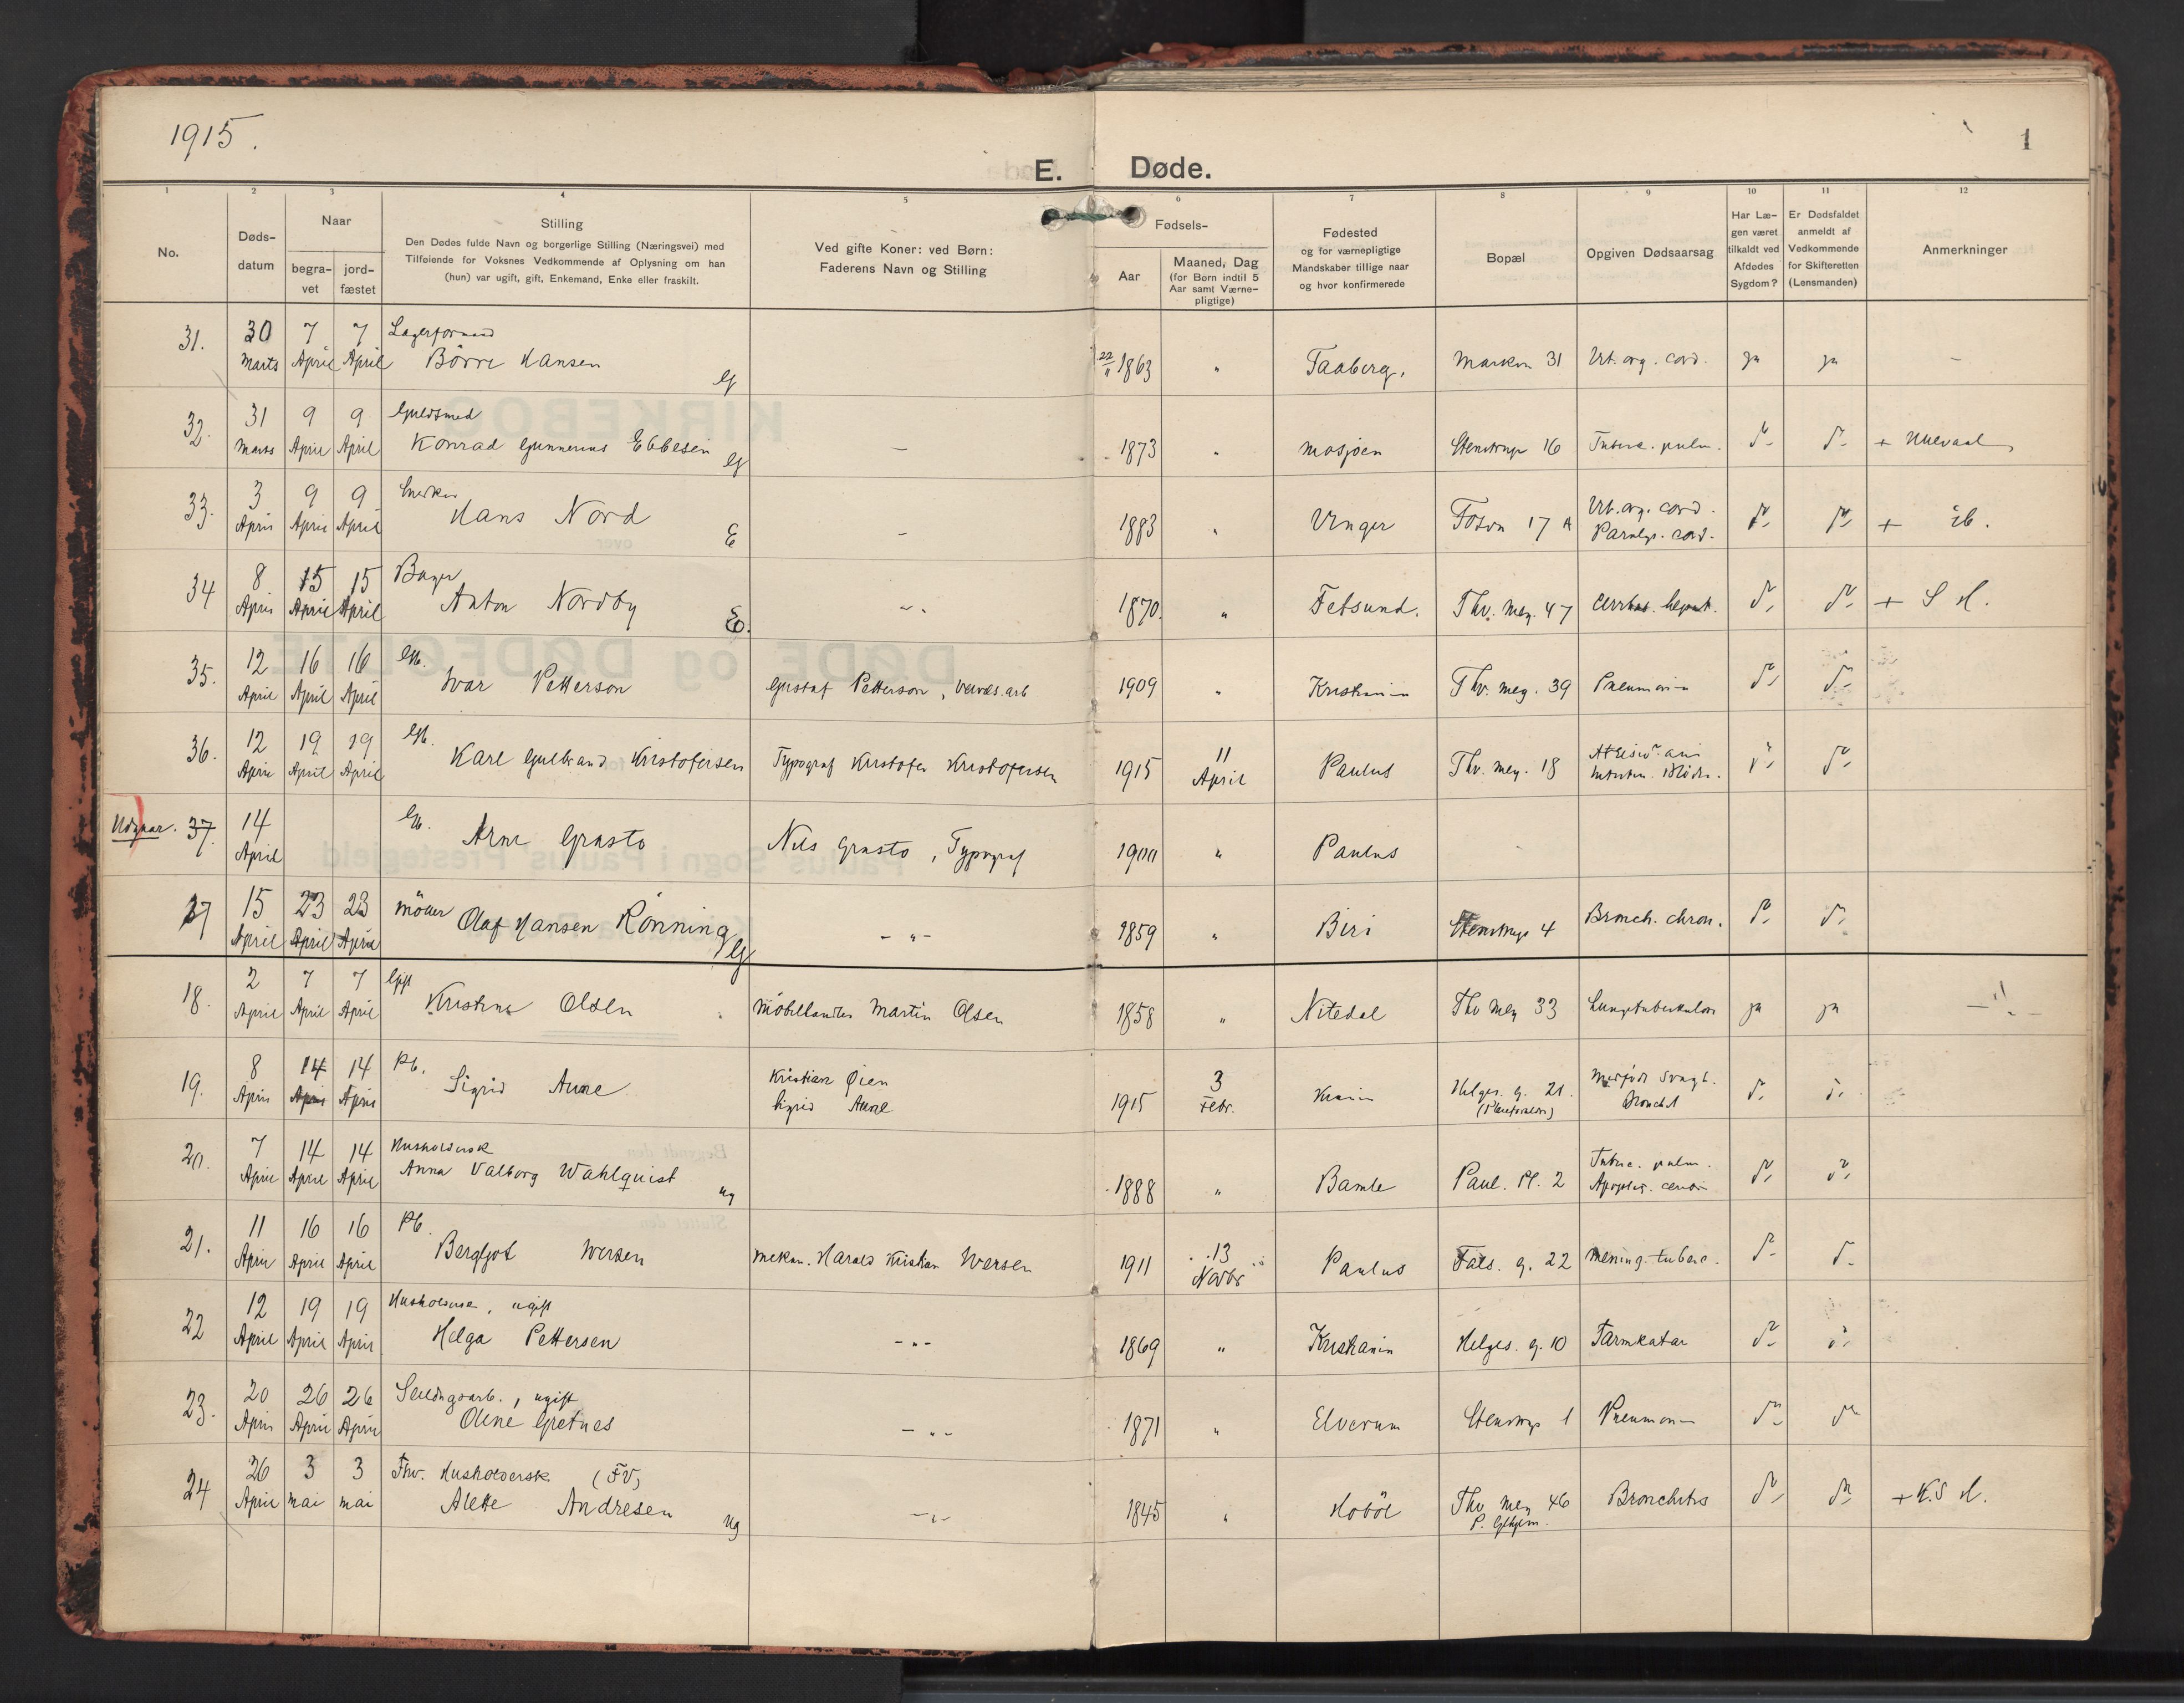 1915.
1
E. Døde.
1 2 3 4 5 6 7 8 9 10 11 12
No.
Døds-
datum
Naar
begra-
vet
jord-
fæstet
Stilling
Den Dødes fulde Navn og borgerlige Stilling (Næringsvei) med
Tilføiende for Voksnes Vedkommende af Oplysning om han
(hun) var ugift, gift, Enkemand, Enke eller fraskilt.
Ved gifte Koner: ved Børn:
Faderens Navn og Stilling
Fødsels-
Aar
Maaned, Dag
(for Børn indtil 5
Aar samt Værne-
pligtige)
Fødested
og for værnepligtige
Mandskaber tillige naar
og hvor konfirmerede
Bopæl
Opgiven Dødsaarsag
Har Læ-
gen været
tilkaldt ved
Afdødes
Sygdom?
Er Dødsfaldet
anmeldt af
Vedkommende
for Skifteretten
(Lensmanden)
Anmerkninger
31. 30 7 7 Lagerformand
Marts April April Börre Hansen G 22/11 1863 " Taaberg. Marken 31 Vit. org. cord. ja ja -
32. 31 9 9 Guldsmed
Marts April April Konrad Gunnerius Ebbesen G - 1873 " Mosjøen Stenstrups 16 Tuberc. pulm. + Ullevaal
33. 3 9 9
April April April Hans Nord E - 1883 " Unger 17 A Vit. org. cord.
Paralys. cord. +
34 8 15 15 Bager
April April April Anton Nordby E. 1870 " Fetsund. Thv. Mey. 47 hepat. +
35. 12 16 16 Gb.
April April April Ivar Petterson Gustaf Petterson, 1909 " Kristiania Thv. mey. 39 Pneumonia
36. 12 19 19 Gb.
April April April Karl Gulbrand Kristofersen Typograf Kristofer Kristofersen 1915 11
April Paulus Thv. mey. 18
Udgaar. 37. 14 Gb.
April Arne Grasto Nils Grasto, Typograf 1900 " Paulus
37 15 23 23 Möller
April April April Olaf Hansen Rönning G - " - 1859 " Biri Stenstrups 4 Bronch. chron.
18. 2 7 7 Gift
April April April Kristine Olsen Möbelhandler Martin Olsen 1858 " Nitedal Thv Mey 33 Lungetuberkulose ja ja
19. 8 14 14 Pb.
April April April Sigrid Aune Kristian Øien
Sigrid Aune 1915 3
Febr. Helges. g. 21. Medfödt svagh.
Bronchit
20. 7 14 14 Husholdersk
April April April Anna Valborg Wahlquist ug 1888 " Bamle Paul. Pl. 2 Tuberc. pulm.
21. 11 16 16 Pb.
April April April Bergljot Iversen Mekan. Harald Kristian Iversen 1911 13
Novbr Paulus Fals. g. 22 Mening. tuberc.
22 12 19 19 Husholderske, ugift
April April April Helga Pettersen - " - 1869 " Kristiania Helges. g. 10 Tarmkatar
23. 20 26 26 ugift
April April April Oline Gretnes - " - 1871 " Elverum Stenstrups 1 Pneumonia
24 26 3 3 Fhv. Husholdersk (FV)
April mai mai Alette Andresen ug - " - 1845 " Hobøl Thv Mey 46 Bronchitis + K.S H.